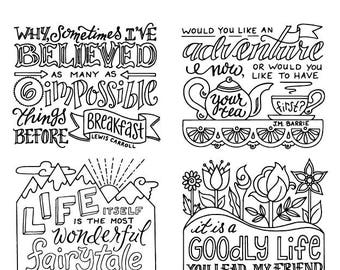 WHY, Sometimes I'VE
BELIEVED
AS MANY AS
6 impossible
things
BEFORE Breakfast
LEWIS CARROLL
WOULD YOU LIKE AN
adventure
now, OR WOULD YOU
LIKE TO HAVE
Your tea FIRST?
J.M. BARRIE
LIFE ITSELF
IS THE MOST
wonderful
fairytale
it is a
GOODLY LIFE
YOU LEAD, MY FRIEND